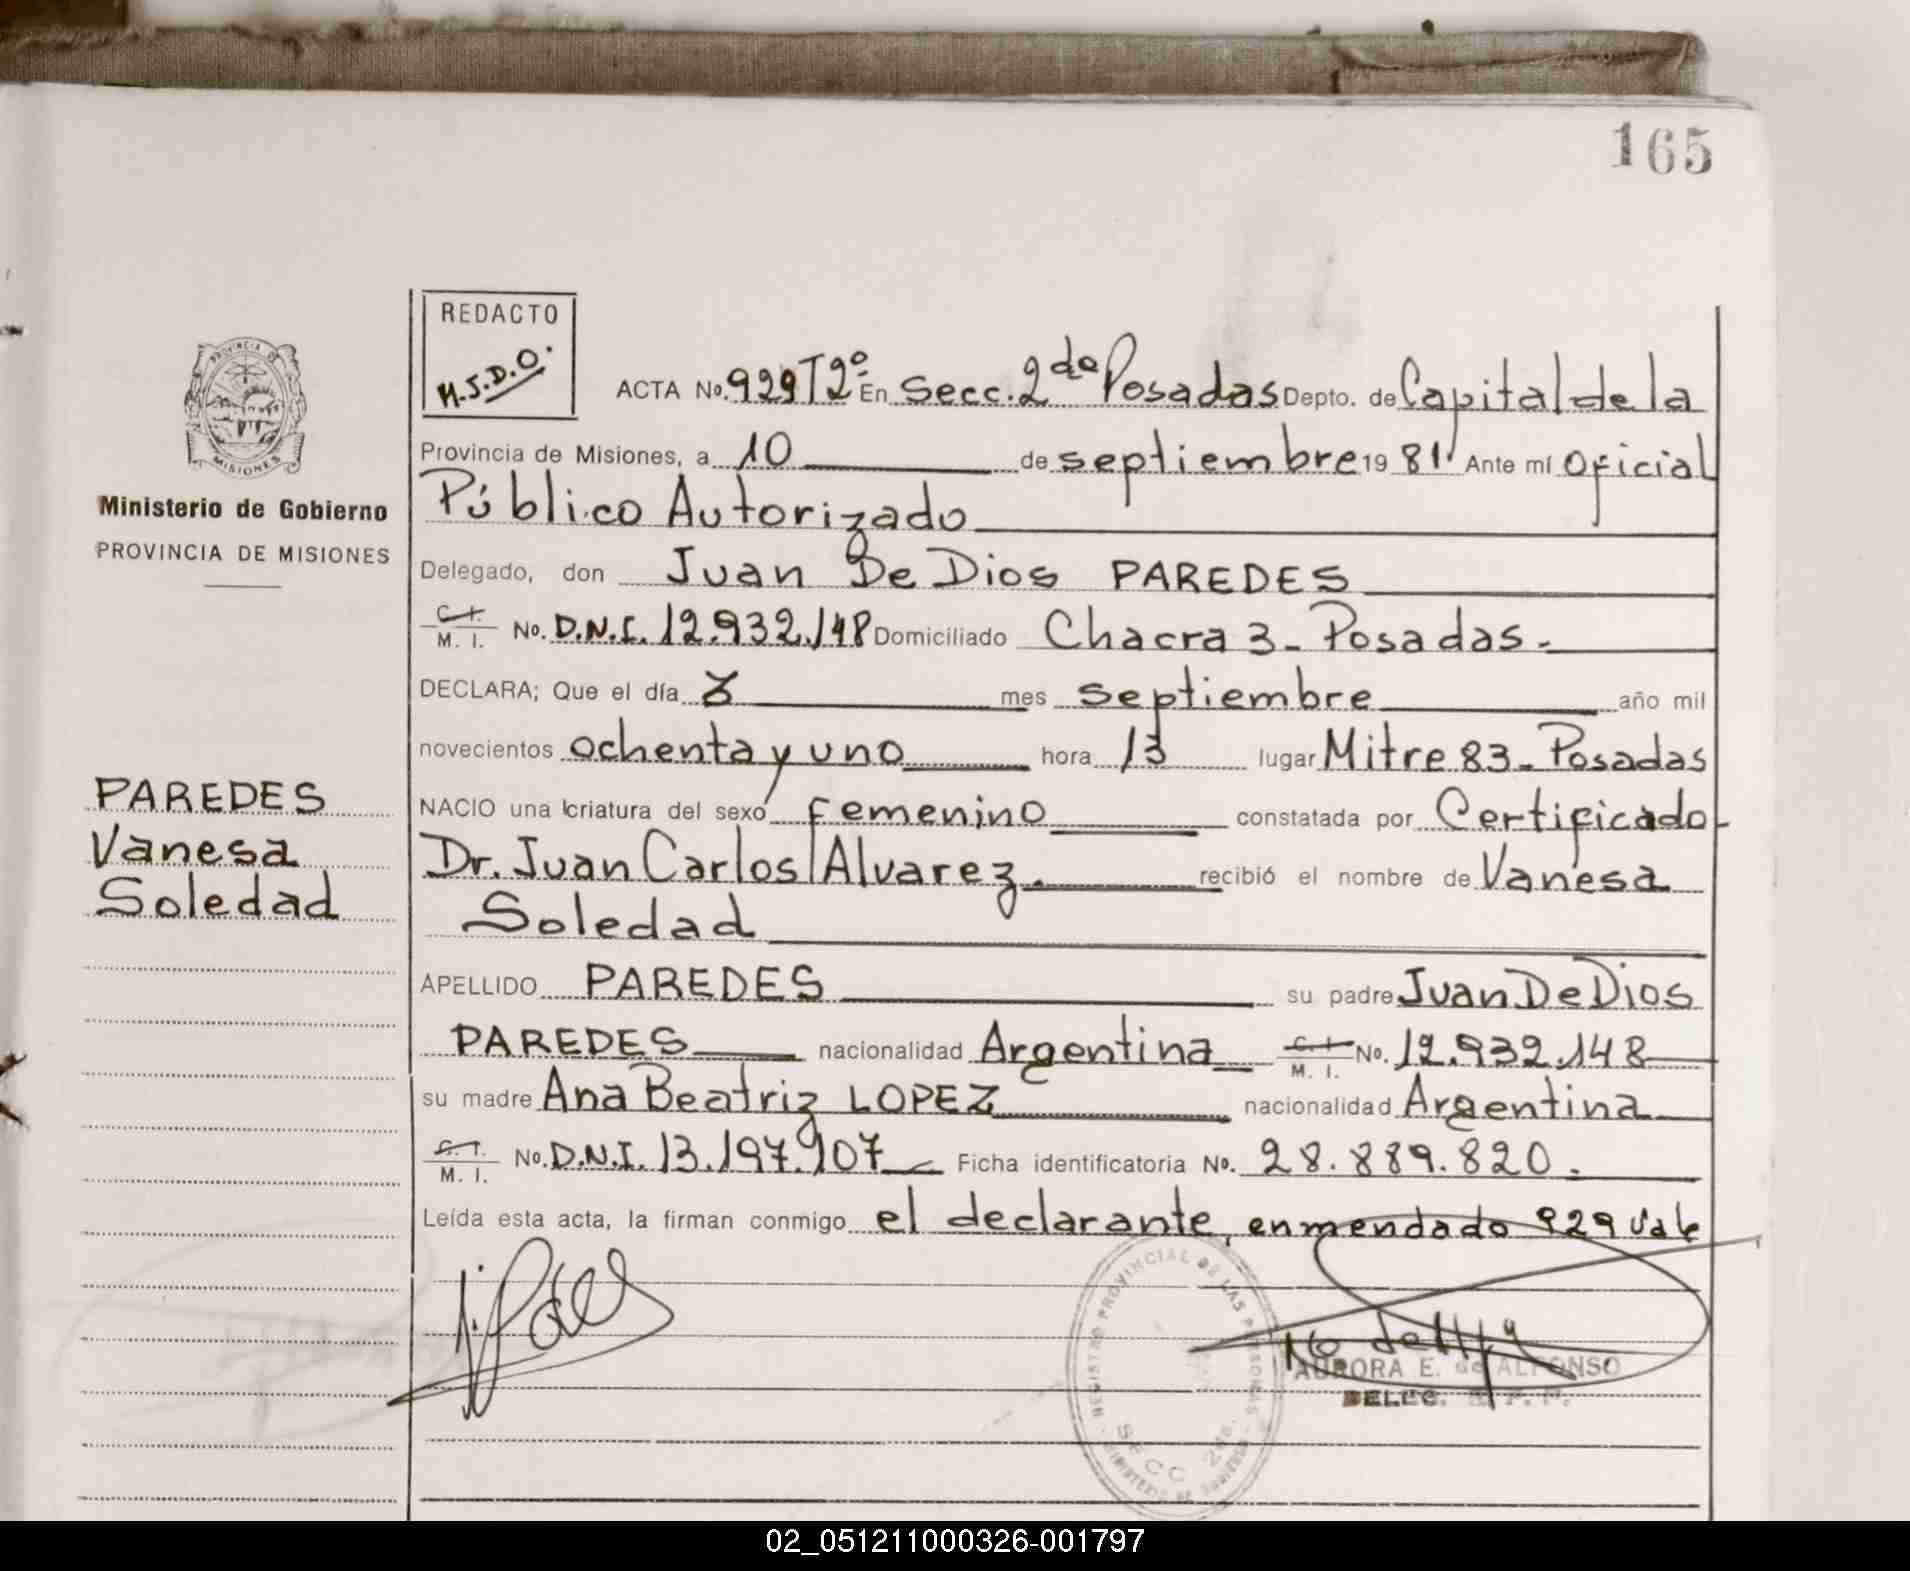 165
REDACTO
M.S.D.O.
ACTA No. 929 T2º En Secc. 2da Posadas Depto. de Capital de la
Provincia de Misiones, a 10 de septiembre 19 81 Ante mí Oficial
Público Autorizado
Delegado, don Juan De Dios PAREDES
C. I.
M. I. No. D.N.I. 12.932.148 Domiciliado Chacra 3 - Posadas.-
DECLARA; Que el día mes septiembre año mil
novecientos ochenta y uno hora 13 lugar Mitre 83 - Posadas
NACIO una criatura del sexo femenino constatada por Certificado
Dr. Juan Carlos Alvarez. recibió el nombre de Vanesa
Soledad
APELLIDO PAREDES su padre Juan De Dios
PAREDES nacionalidad Argentina C. I. M. I. No. 12.932.148
su madre Ana Beatriz LOPEZ nacionalidad Argentina
C. I.
M. I. No. D.N.I. 13.197.907 Ficha identificatoria No. 28.889.820.
Leída esta acta, la firman conmigo el declarante, enmendado 929 Vale
PROVINCIA DE
MISIONES
Ministerio de Gobierno
PROVINCIA DE MISIONES
PAREDES
Vanesa
Soledad
REGISTRO PROVINCIAL DE LAS PERSONAS
SECC 2da.
MINISTERIO DE GOBIERNO
AURORA E. de ALFONSO
DELEG.
02_051211000326-001797